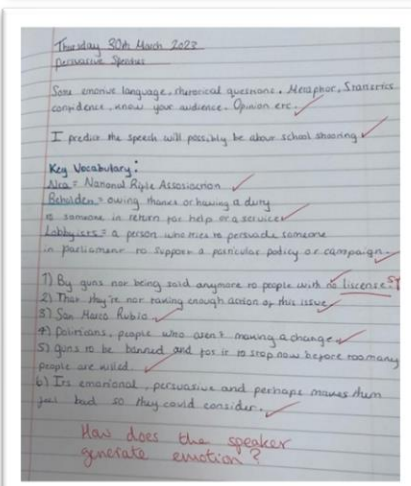 Thursday 30th March 2023
Persuasive Speeches
Some emotive language, rhetorical questions, Metaphor, Statistics
confidence, know your audience. Opinion etc.
I predict the speech will possibly be about school shooting
Key Vocabulary:
NRA = National Rifle Assosiacrion
Beholden = owing thanks or having a duty
to someone in return for help or a service
Lobbyists = a person who tries to persuade someone
in parliament to support a particular policy or campaign.
1) By guns not being sold anymore to people with no liscense. SP
2) That they're not taking enough action of this issue
3) San Marco Rubio.
4) Politicans, people who aren't making a change
5) Guns to be banned and for it to stop now before too many
people are killed.
6) Its emotional, persuasive and perhaps makes them
feel bad so they could consider.
How does the speaker
generate emotion?